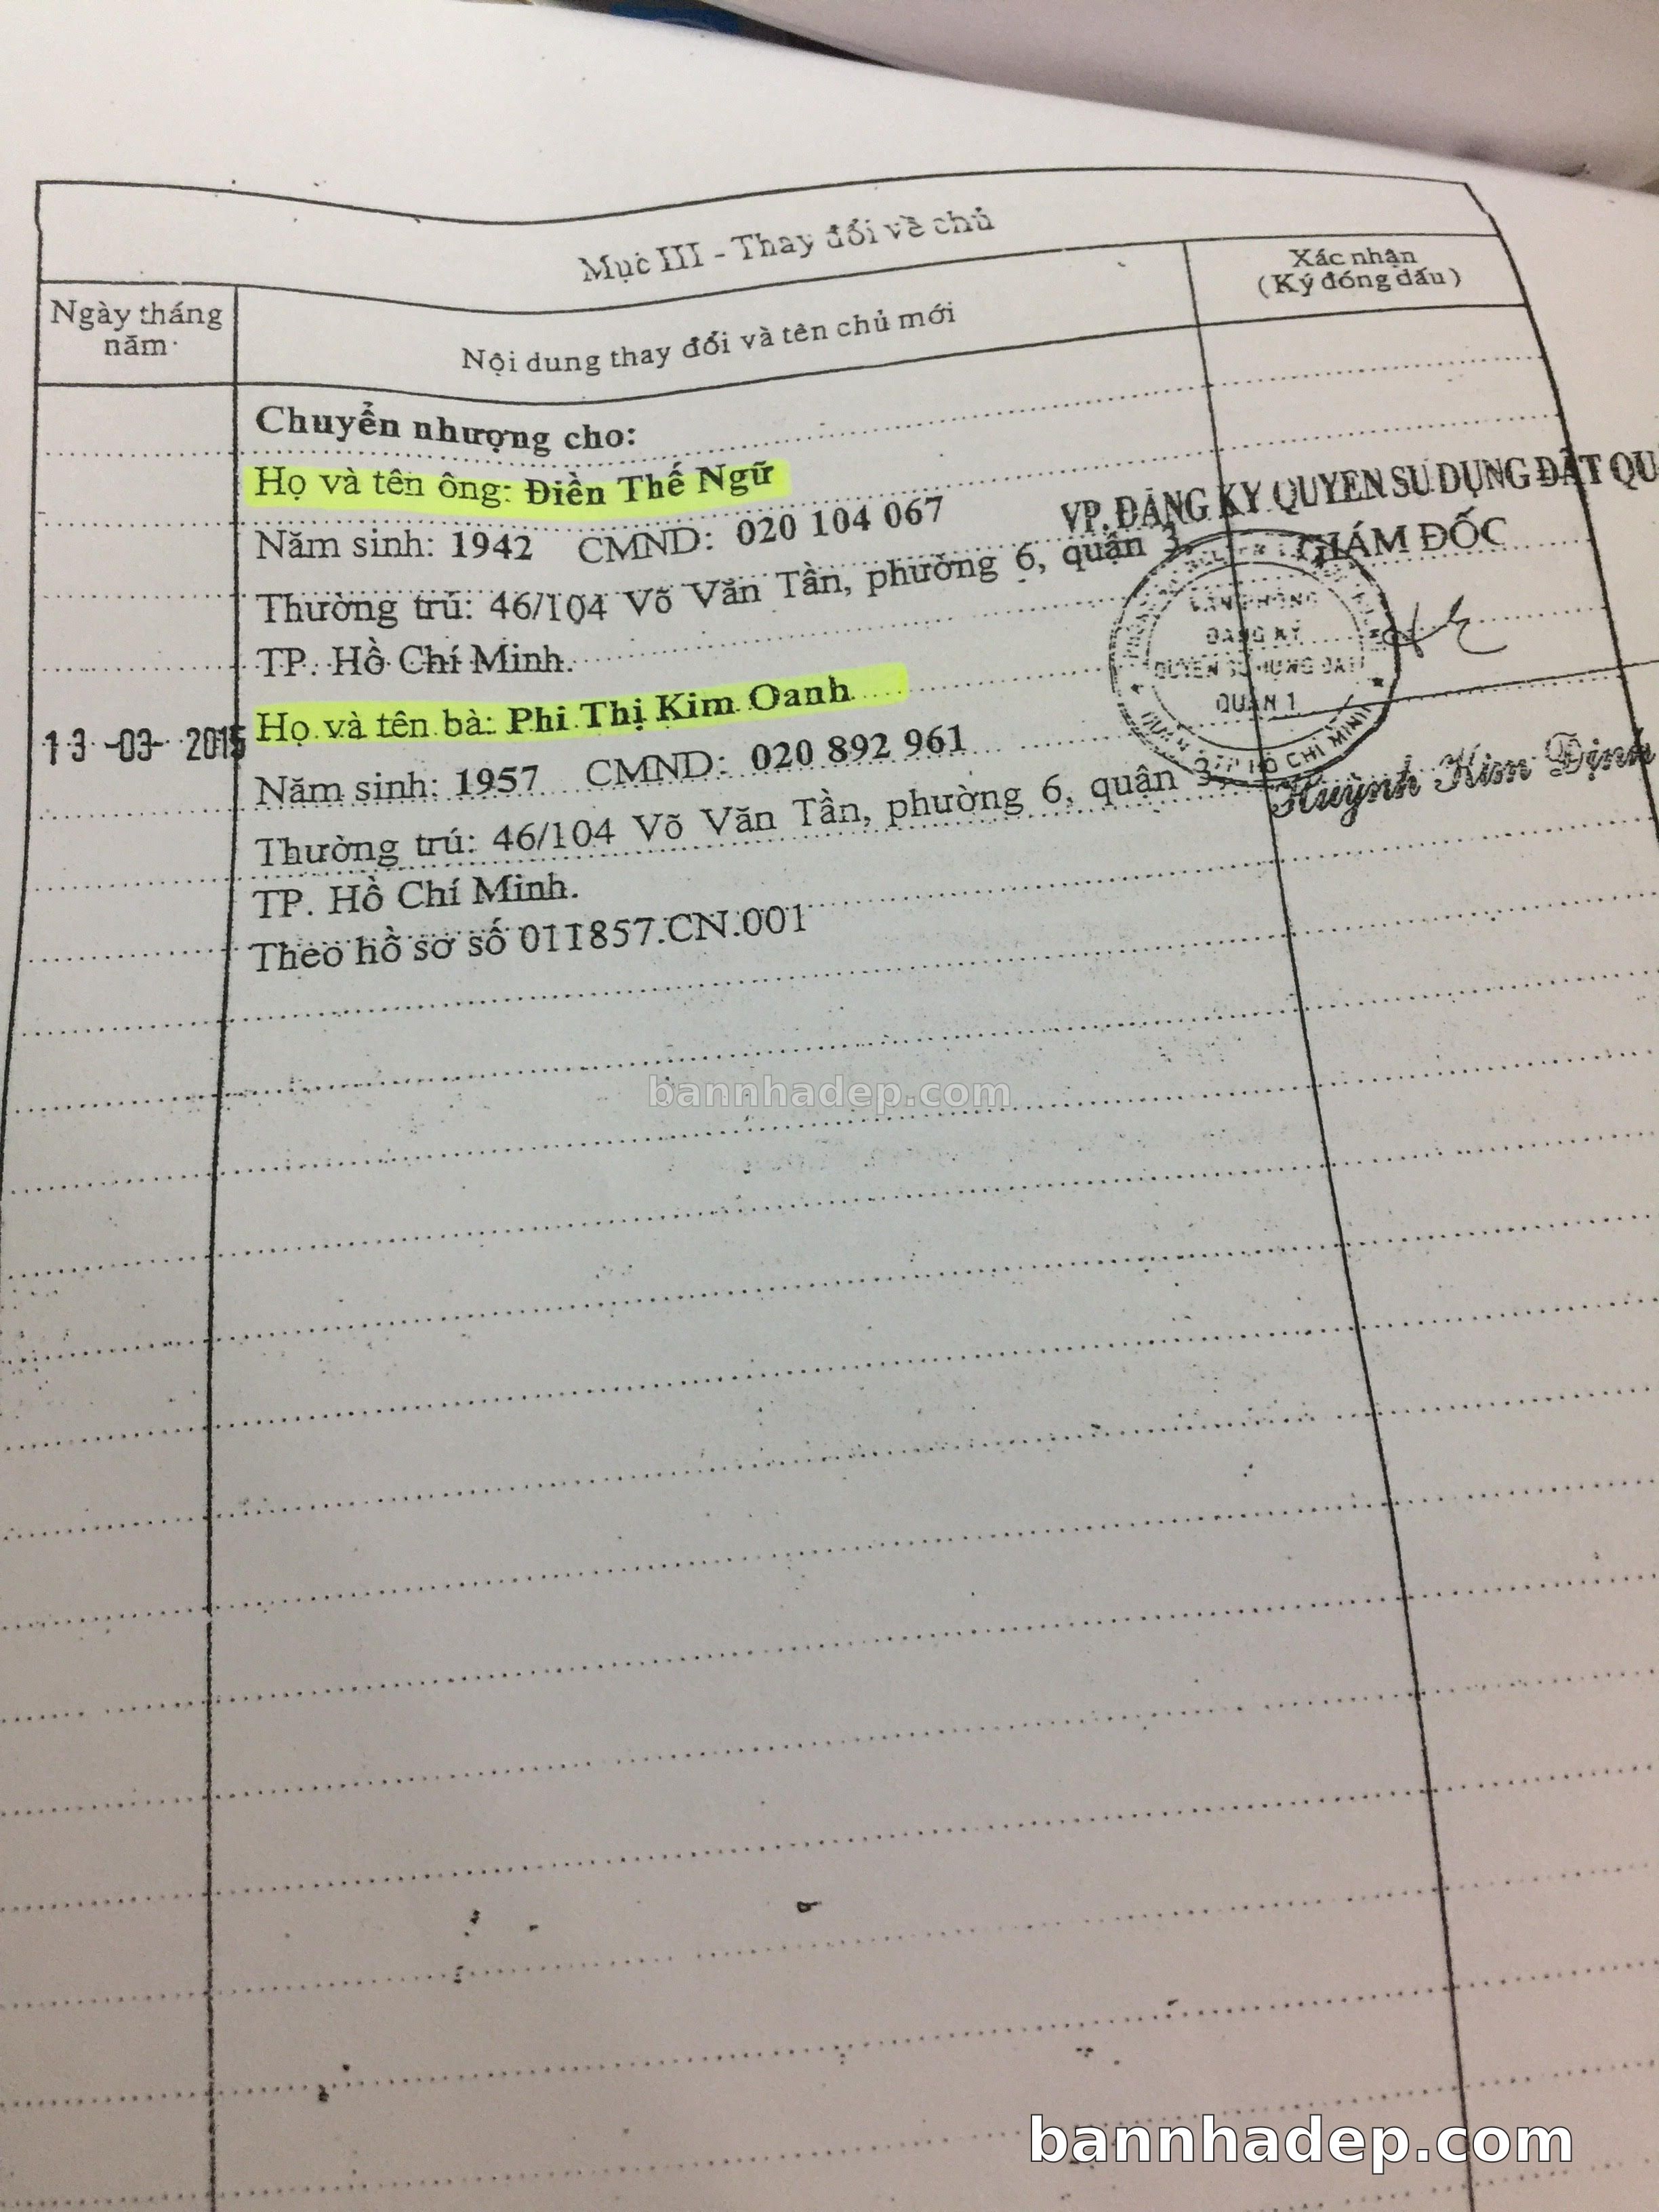 Mục III - Thay đổi về chủ
Ngày tháng năm
Nội dung thay đổi và tên chủ mới
Xác nhận
( Ký đóng dấu )
Chuyển nhượng cho:
Họ và tên ông: Điền Thế Ngữ
Năm sinh: 1942 CMND: 020 104 067
Thường trú: 46/104 Võ Văn Tần, phường 6, quận 3,
TP. Hồ Chí Minh.
Họ và tên bà: Phi Thị Kim Oanh
13 -03- 2015
Năm sinh: 1957 CMND: 020 892 961
Thường trú: 46/104 Võ Văn Tần, phường 6, quận 3,
TP. Hồ Chí Minh.
Theo hồ sơ số 011857.CN.001
VP. ĐĂNG KÝ QUYỀN SỬ DỤNG ĐẤT
GIÁM ĐỐC
VĂN PHÒNG
ĐĂNG KÝ
QUYỀN SỬ DỤNG ĐẤT
QUẬN 1
HỒ CHÍ MINH
Huỳnh Kim Định
bannhadep.com
bannhadep.com